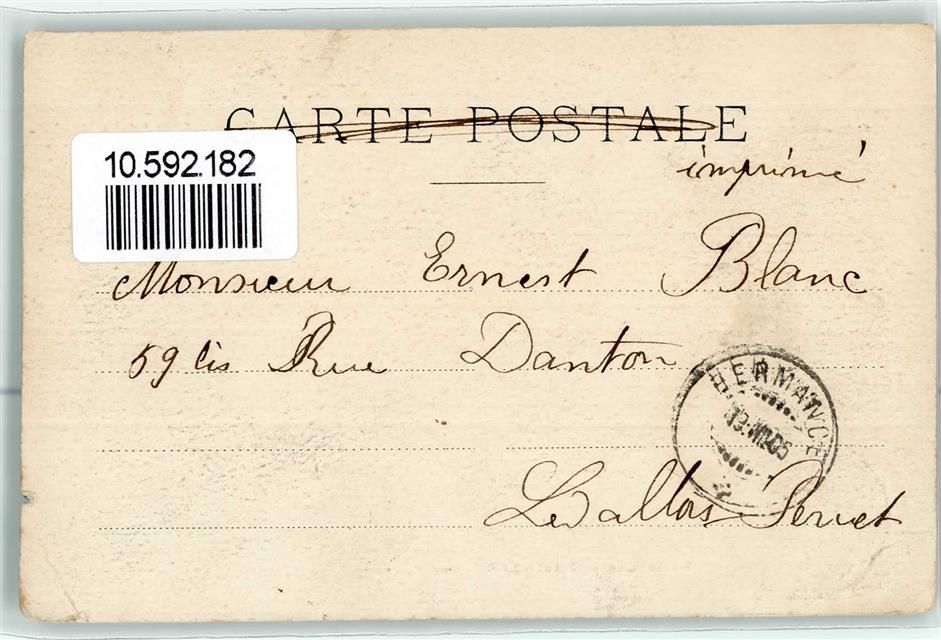 CARTE POSTALE
imprimé
10.592.182
Monsieur Ernest Blanc
59 bis Rue Danton
HERMANCE
Levallois Perret